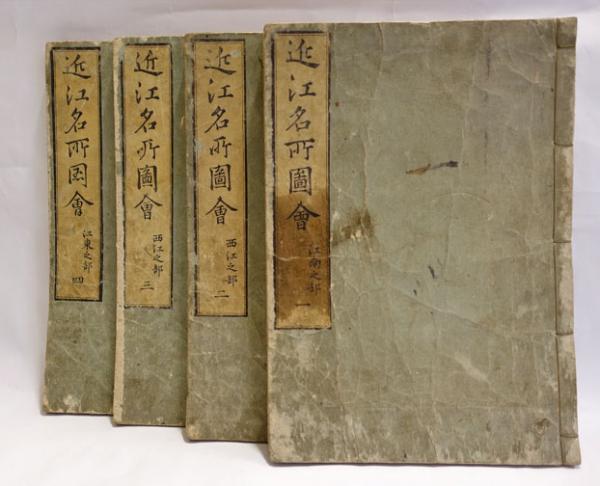 近江名所圖會 江南之部 一
近江名所圖會 西江之部 二
近江名所圖會 西江之部 三
近江名所圖會 江東之部 四